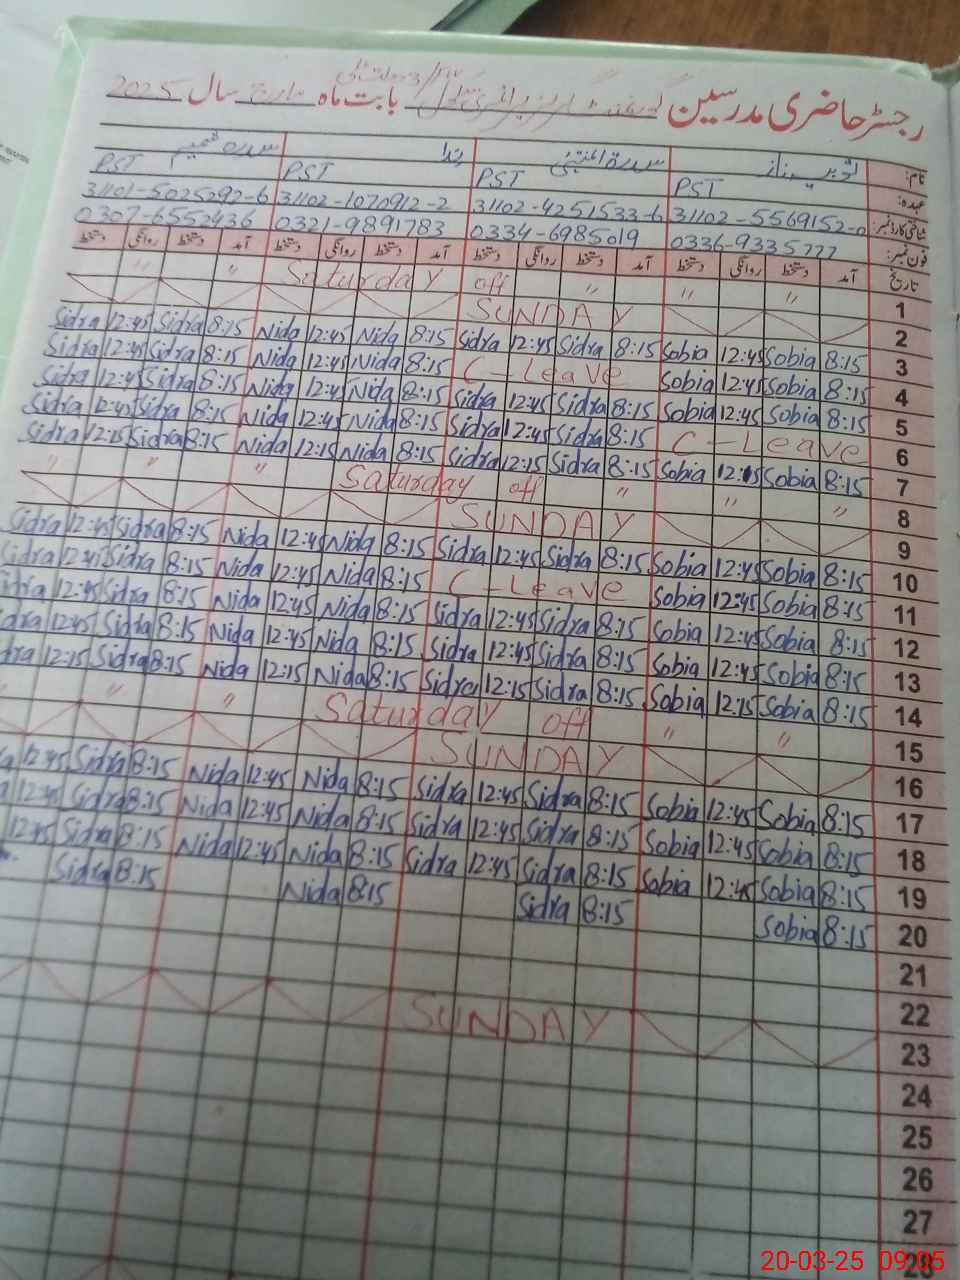 رجسٹر حاضری مدرسین گورنمنٹ گرلز پرائمری سکول بابت ماہ مارچ سال 2025
نام: ثوبیہ ناز سدرۃ المنتہیٰ ندا سدرہ شمیم
عہدہ: PST PST PST PST
شناختی کارڈ نمبر: 31102-5569152-0 31102-4251533-6 31102-1070912-2 31101-5025292-6
فون نمبر: 0336-9335777 0334-6985019 0321-9891783 0307-6552436
تاریخ آمد دستخط روانگی دستخط آمد دستخط روانگی دستخط آمد دستخط روانگی دستخط آمد دستخط روانگی دستخط
" " Saturday off " " " 1
SUNDAY 2
Sidra 12:45 Sidra 8:15 Nida 12:45 Nida 8:15 Sidra 12:45 Sidra 8:15 Sobia 12:45 Sobia 8:15 3
Sidra 12:45 Sidra 8:15 Nida 12:45 Nida 8:15 C-Leave Sobia 12:45 Sobia 8:15 4
Sidra 12:45 Sidra 8:15 Nida 12:45 Nida 8:15 Sidra 12:45 Sidra 8:15 Sobia 12:45 Sobia 8:15 5
Sidra 12:45 Sidra 8:15 Nida 12:45 Nida 8:15 Sidra 12:45 Sidra 8:15 C-Leave 6
Sidra 12:15 Sidra 8:15 Nida 12:15 Nida 8:15 Sidra 12:15 Sidra 8:15 Sobia 12:15 Sobia 8:15 7
" " " Saturday off " " " 8
SUNDAY 9
Sidra 12:45 Sidra 8:15 Nida 12:45 Nida 8:15 Sidra 12:45 Sidra 8:15 Sobia 12:45 Sobia 8:15 10
Sidra 12:45 Sidra 8:15 Nida 12:45 Nida 8:15 C-Leave Sobia 12:45 Sobia 8:15 11
dra 12:45 Sidra 8:15 Nida 12:45 Nida 8:15 Sidra 12:45 Sidra 8:15 Sobia 12:45 Sobia 8:15 12
dra 12:45 Sidra 8:15 Nida 12:45 Nida 8:15 Sidra 12:45 Sidra 8:15 Sobia 12:45 Sobia 8:15 13
dra 12:15 Sidra 8:15 Nida 12:15 Nida 8:15 Sidra 12:15 Sidra 8:15 Sobia 12:15 Sobia 8:15 14
" " Saturday off " " 15
SUNDAY 16
a 12:45 Sidra 8:15 Nida 12:45 Nida 8:15 Sidra 12:45 Sidra 8:15 Sobia 12:45 Sobia 8:15 17
a 12:45 Sidra 8:15 Nida 12:45 Nida 8:15 Sidra 12:45 Sidra 8:15 Sobia 12:45 Sobia 8:15 18
12:45 Sidra 8:15 Nida 12:45 Nida 8:15 Sidra 12:45 Sidra 8:15 Sobia 12:45 Sobia 8:15 19
Sidra 8:15 Nida 8:15 Sidra 8:15 Sobia 8:15 20
21
22
SUNDAY 23
24
25
26
27
28
20-03-25 09:05